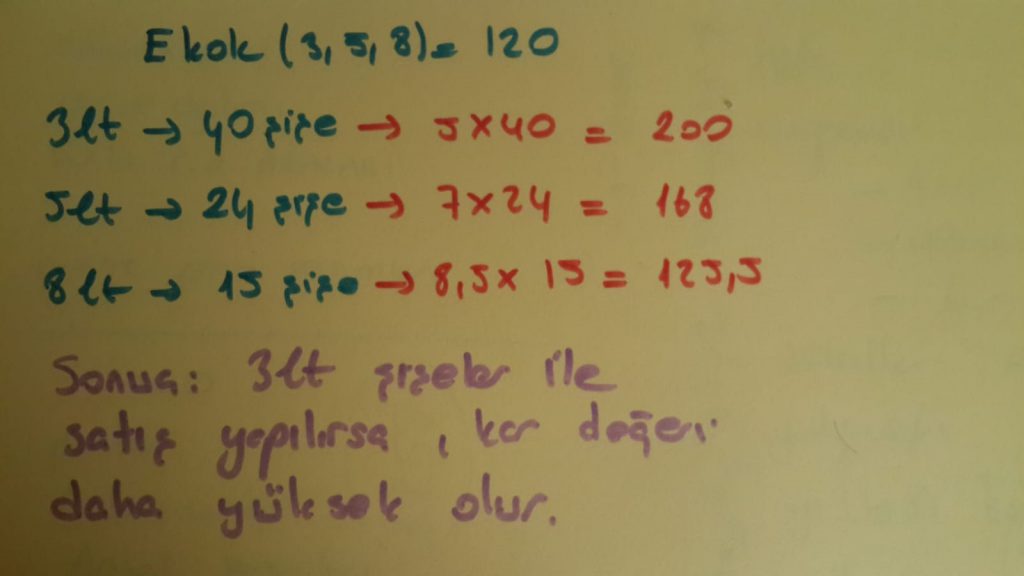 Ekok (3, 5, 8) = 120
3lt → 40 şişe → 5 x 40 = 200
5lt → 24 şişe → 7 x 24 = 168
8lt → 15 şişe → 8,5 x 15 = 125,5
Sonuç: 3lt şişeler ile
satış yapılırsa, kar değeri
daha yüksek olur.